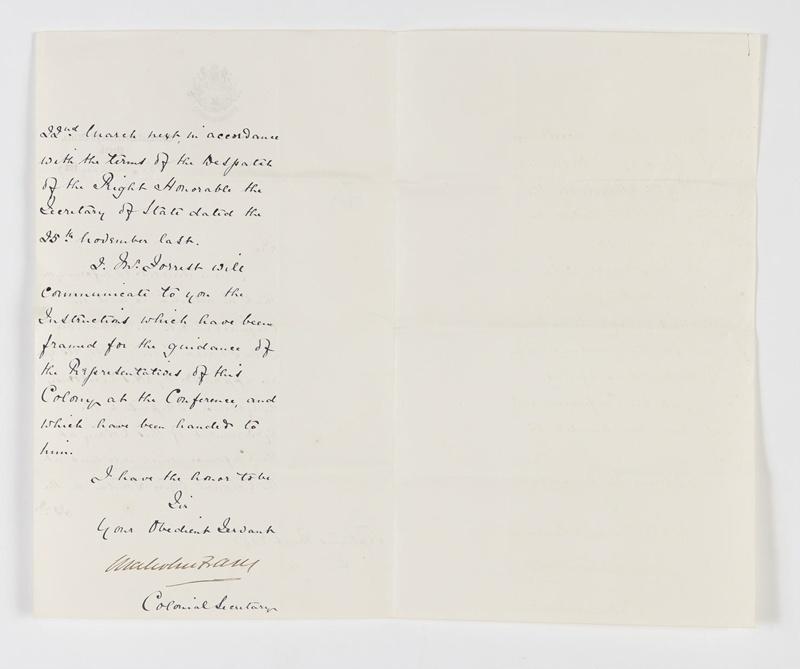 22nd March next, in accordance
with the terms of the Despatch
of the Right Honorable the
Secretary of State dated the
25th November last.
2. Mr. Forrest will
communicate to you the
Instructions which have been
framed for the guidance of
the Representatives of this
Colony at the Conference, and
which have been handed to
him.
I have the honor to be
Sir
Your Obedient Servant
Malcolm Fraser
Colonial Secretary